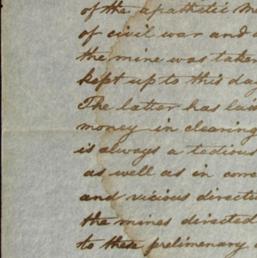 of the apathetic Me
of civil war and
the mine was taken
kept up to this day
The latter has lai
money in clearing
is always a tedious
as well as in corre
and vicious directi
the mines directed
to these prelimenary